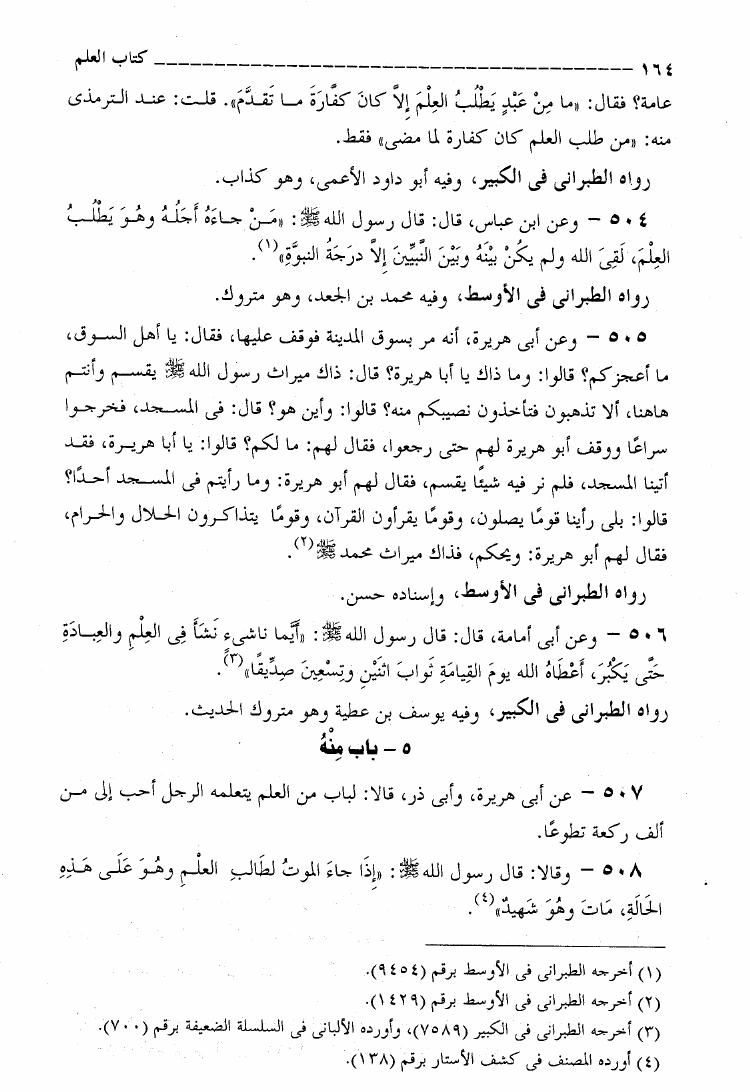 ١٦٤ ـــــــــــــــــــــــــــــــــــــــــــــــــــــــــــــــــــــــــ كتاب العلم
عامة؟ فقال: «ما مِنْ عَبْدٍ يَطْلُبُ العِلْمَ إِلاَّ كانَ كَفَّارَةَ مــا تَقـدَّمَ». قلـت: عنـد الـترمذى
منه: «من طلب العلم كان كفارة لما مضى» فقط.
رواه الطبرانى فى الكبير، وفيه أبو داود الأعمى، وهو كذاب.
٥٠٤ – وعن ابن عباس، قال: قال رسول الله ﷺ: «مَـنْ جـاءَهُ أَجَلُـهُ وهُـوَ يَطْلُـبُ
العِلْمَ، لَقِىَ الله ولم يكُنْ بَيْنَهُ وبَيْنَ النَّبِيِّينَ إلاَّ درَجَةُ النبوَّةِ»(١).
رواه الطبرانى فى الأوسط، وفيه محمد بن الجعد، وهو متروك.
٥٠٥ – وعن أبى هريرة، أنه مر بسوق المدينة فوقف عليها، فقال: يا أهل السـوق،
ما أعجزكم؟ قالوا: وما ذاك يا أبا هريرة؟ قال: ذاك ميراث رسول الله ﷺ يقسـم وأنتـم
هاهنا، ألا تذهبون فتأخذون نصيبكم منه؟ قالوا: وأين هو؟ قال: فى المسـجد، فخرجـوا
سراعًا ووقف أبو هريرة لهم حتى رجعوا، فقال لهم: ما لكم؟ قالوا: يا أبا هريـرة، فقـد
أتينا المسجد، فلم نر فيه شيئًا يقسم، فقال لهم أبو هريرة: وما رأيتم فى المسـجد أحـدًا؟
قالوا: بلى رأينا قومًا يصلون، وقومًا يقرأون القرآن، وقومًا يتذاكـرون الحـلال والحـرام،
فقال لهم أبو هريرة: ويحكم، فذاك ميراث محمد ﷺ(٢).
رواه الطبرانى فى الأوسط، وإسناده حسن.
٥٠٦ – وعن أبى أمامة، قال: قال رسول الله ﷺ: «أَيُّما ناشىءٍ نَشَأَ فِى العِلْمِ والعِبـادَةِ
حَتَّى يَكْبُرَ، أَعْطَاهُ الله يومَ القِيامَةِ ثَوابَ اثْنَيْنِ وتِسْعِينَ صِدِّيقًا»(٣).
رواه الطبرانى فى الكبير، وفيه يوسف بن عطية وهو متروك الحديث.
٥ – باب مِنْهُ
٥٠٧ – عن أبى هريرة، وأبى ذر، قالا: لباب من العلم يتعلمه الرجل أحب إلى مـن
ألف ركعة تطوعًا.
٥٠٨ – وقالا: قال رسول الله ﷺ: «إِذَا جاءَ الموتُ لطَالبِ العلْـمِ وهُـوَ عَلَـى هَـذِهِ
الحَالَةِ، مَاتَ وهُوَ شَهيدٌ»(٤).
(١) أخرجه الطبرانى فى الأوسط برقم (٩٤٥٤).
(٢) أخرجه الطبرانى فى الأوسط برقم (١٤٢٩).
(٣) أخرجه الطبرانى فى الكبير (٧٥٨٩)، وأورده الألبانى فى السلسلة الضعيفة برقم (٧٠٠).
(٤) أورده المصنف فى كشف الأستار برقم (١٣٨).